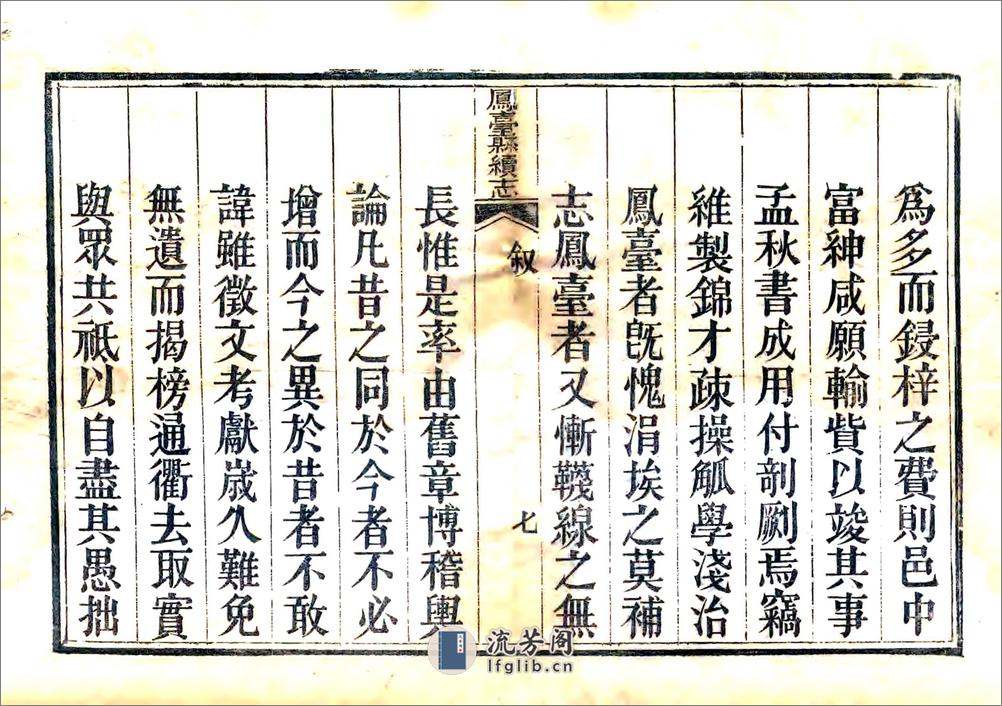 爲多而鋟梓之費則邑中
富紳咸願輸貲以竣其事
孟秋書成用付剞劂焉竊
維製錦才疎操觚學淺治
鳳臺者既愧涓埃之莫補
志鳳臺者又慚韈線之無
鳳臺縣續志
叙
七
長惟是率由舊章博稽輿
論凡昔之同於今者不必
增而今之異於昔者不敢
諱雖徵文考獻嵗久難免
無遺而揭榜通衢去取實
與眾共祇以自盡其愚拙
流芳阁
lfglib.cn